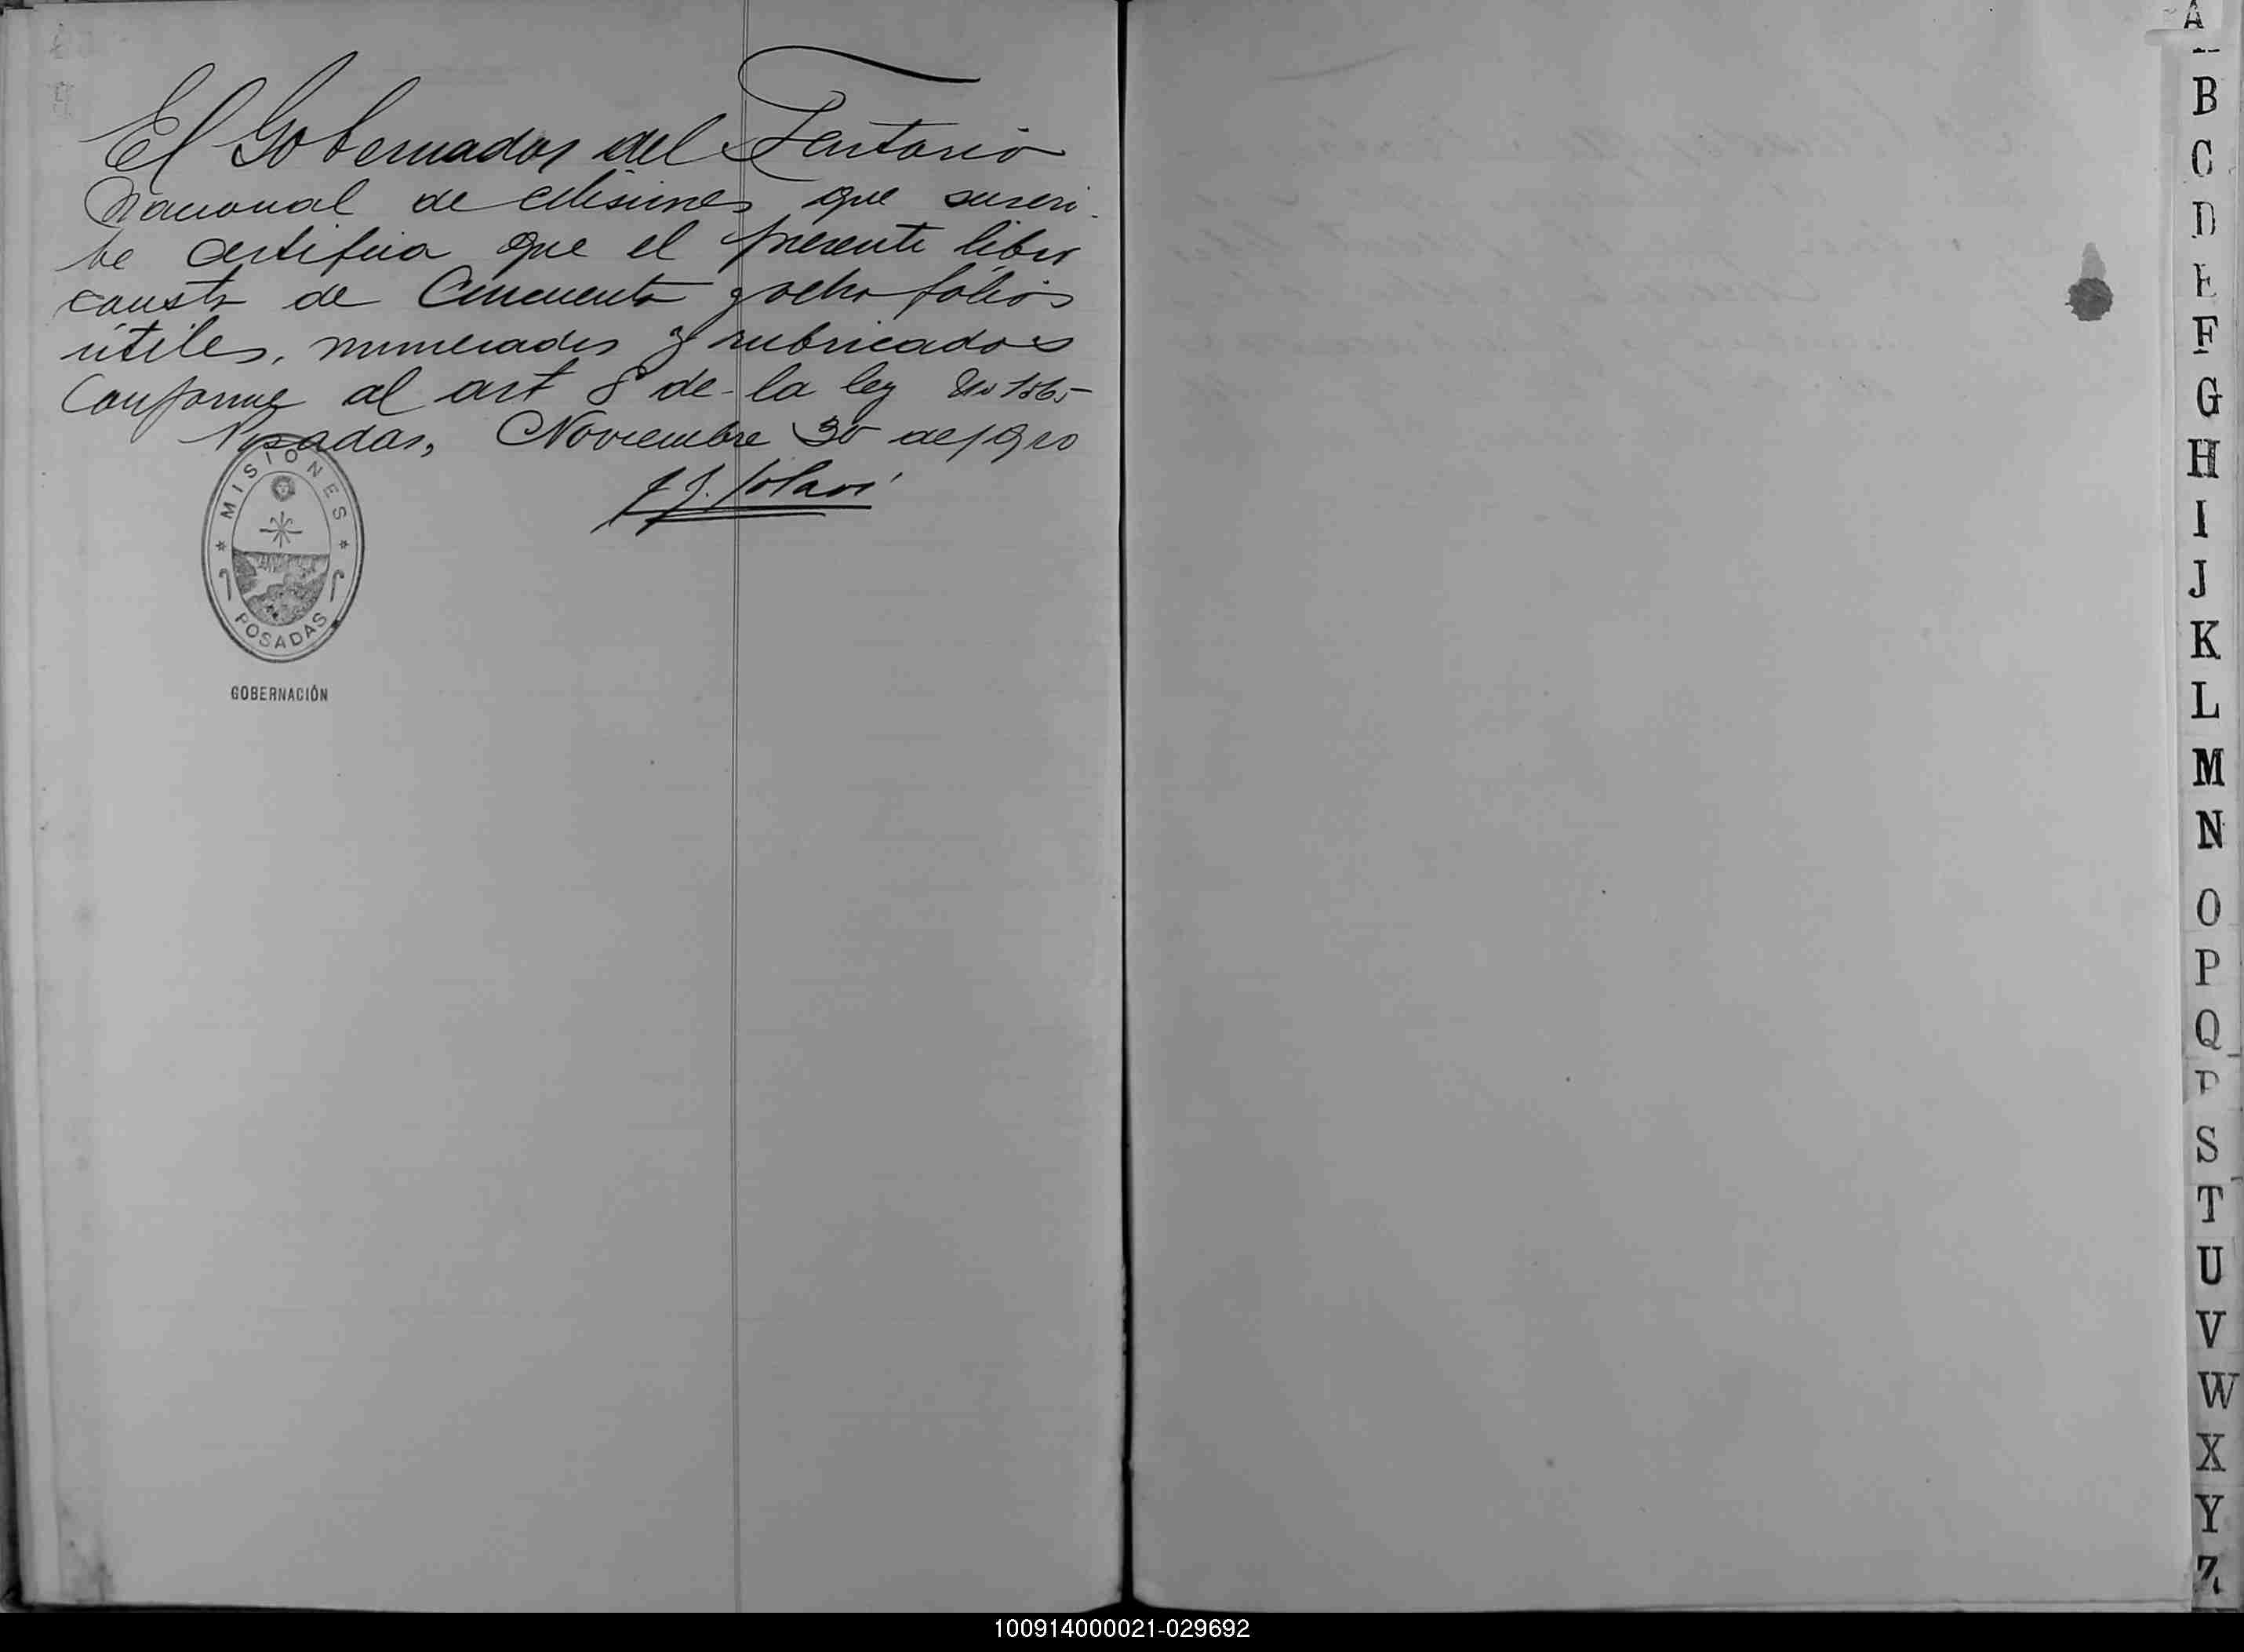 El Gobernador del Territorio
Nacional de Misiones que suscri-
be certifica que el presente libro
consta de Cincuenta y ocho fólios
útiles, numerados y rubricados
Conforme al art 8º de la ley No 1565
Posadas, Noviembre 30 de 1910
MISIONES
POSADAS
GOBERNACIÓN
A
B
C
D
E
F
G
H
I
J
K
L
M
N
O
P
Q
R
S
T
U
V
W
X
Y
Z
100914000021-029692